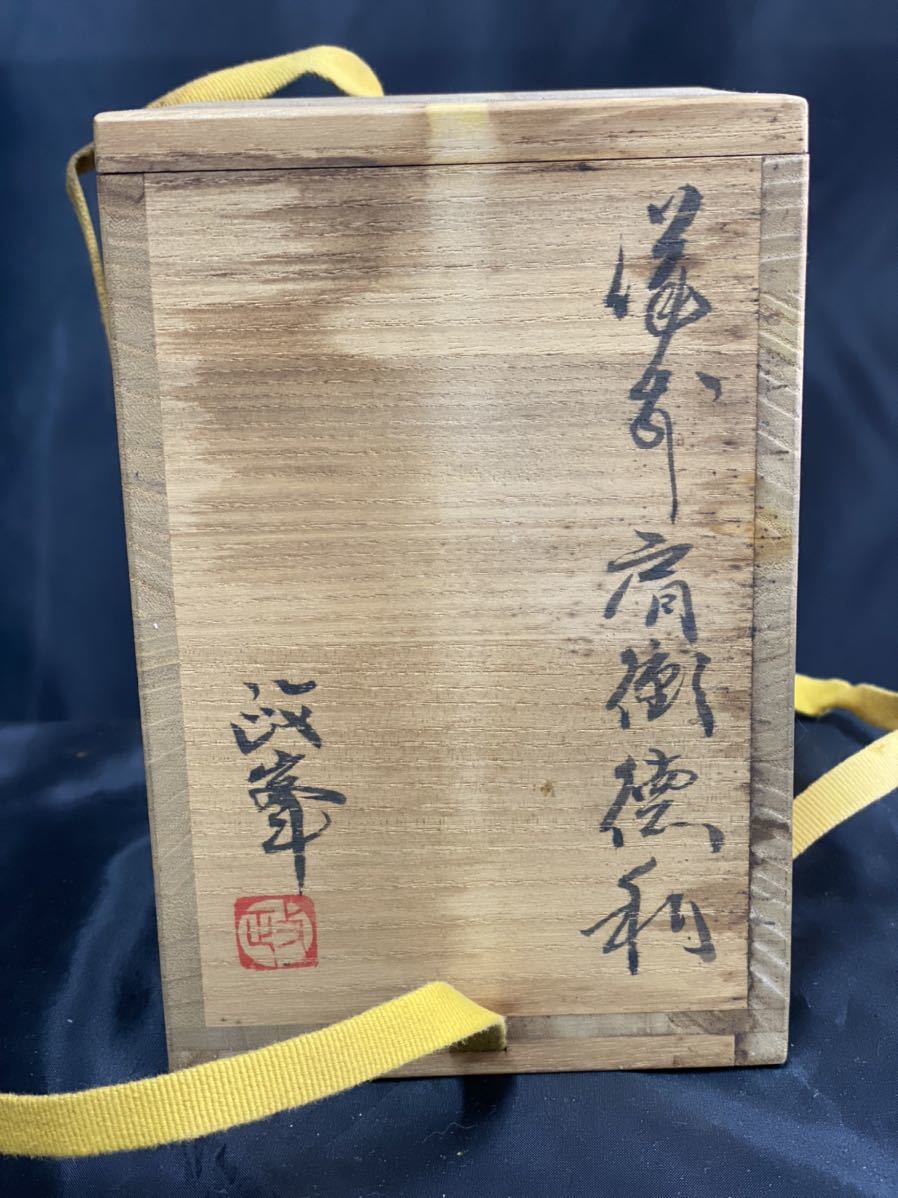 備前肩衝徳利
政峯
政